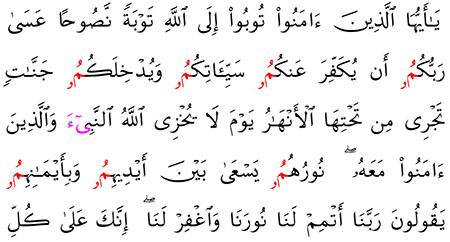 يَـٰٓأَيُّهَا ٱلَّذِينَ ءَامَنُوا۟ تُوبُوٓا۟ إِلَى ٱللَّهِ تَوْبَةً نَّصُوحًا عَسَىٰ
رَبُّكُمُۥٓ أَن يُكَفِّرَ عَنكُمُۥ سَيِّـَٔاتِكُمُۥ وَيُدْخِلَكُمُۥ جَنَّـٰتٍ
تَجْرِى مِن تَحْتِهَا ٱلْأَنْهَـٰرُ يَوْمَ لَا يُخْزِى ٱللَّهُ ٱلنَّبِىٓءَ وَٱلَّذِينَ
ءَامَنُوا۟ مَعَهُۥ ۖ نُورُهُمُۥ يَسْعَىٰ بَيْنَ أَيْدِيهِمُۥ وَبِأَيْمَـٰنِهِمُۥ
يَقُولُونَ رَبَّنَآ أَتْمِمْ لَنَا نُورَنَا وَٱغْفِرْ لَنَآ ۖ إِنَّكَ عَلَىٰ كُلِّ